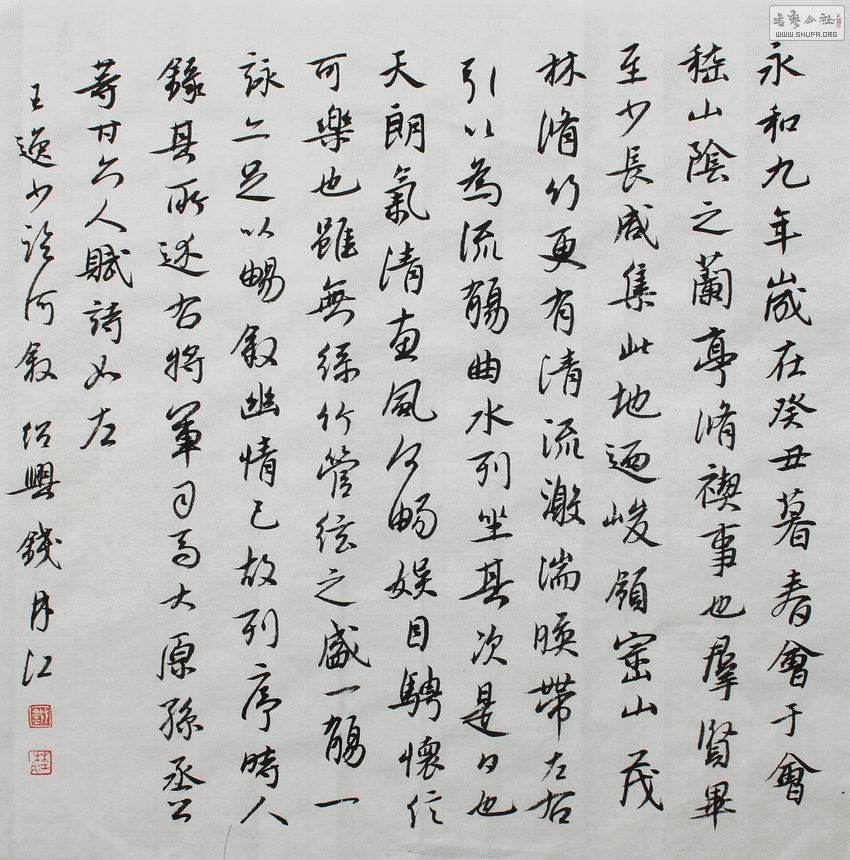 永和九年歲在癸丑暮春會于會
稽山陰之蘭亭脩禊事也羣賢畢
至少長咸集此地迺峻領崇山茂
林脩竹更有清流激湍暎帶左右
引以為流觴曲水列坐其次是日也
天朗氣清惠風和暢娛目騁懷信
可樂也雖無絲竹管絃之盛一觴一
詠亦足以暢叙幽情已故列序時人
錄其所述右將軍司馬大原孫丞公
等廿六人賦詩如左
王逸少臨河叙 紹興錢月江
書藝公社
WWW.SHUFA.ORG